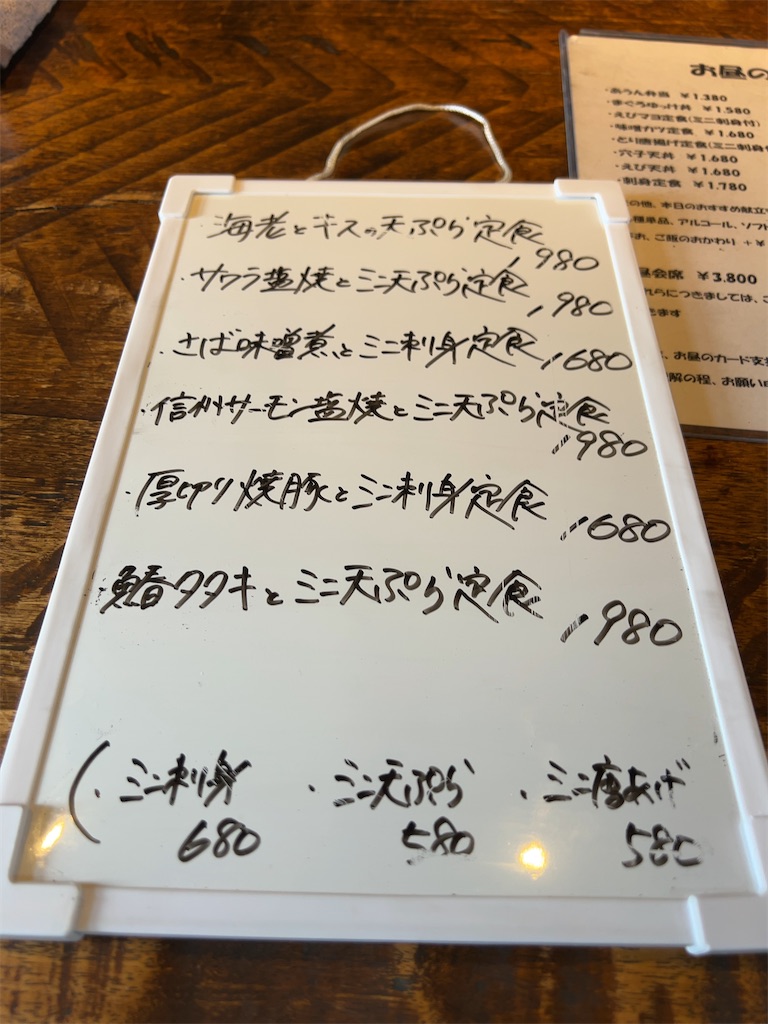 ・海老とキスの天ぷら定食
1,980
・サワラ塩焼とミニ天ぷら定食
1,980
・さば味噌煮とミニ刺身定食 1,680
・信州サーモン塩焼とミニ天ぷら定食
1,980
・厚切り焼豚とミニ刺身定食
1,680
・鰆タタキとミニ天ぷら定食
1,980
(・ミニ刺身 ・ミニ天ぷら ・ミニ唐あげ
680 580 580
お昼の
・あうん弁当 ¥1.380
・まぐろゆっけ丼 ¥1.580
・えびマヨ定食(ミニ刺身付)
・味噌カツ定食 ¥1.680
・とり唐揚げ定食(ミニ刺身
・穴子天丼 ¥1.680
・えび天丼 ¥1.680
・刺身定食 ¥1.780
の他、本日のおすすめ献立
種単品、アルコール、ソフト
お、ご飯のおかわり +¥
昼会席 ¥3.800
れらにつきましては、こ
きます
、お昼のカード支
解の程、お願い